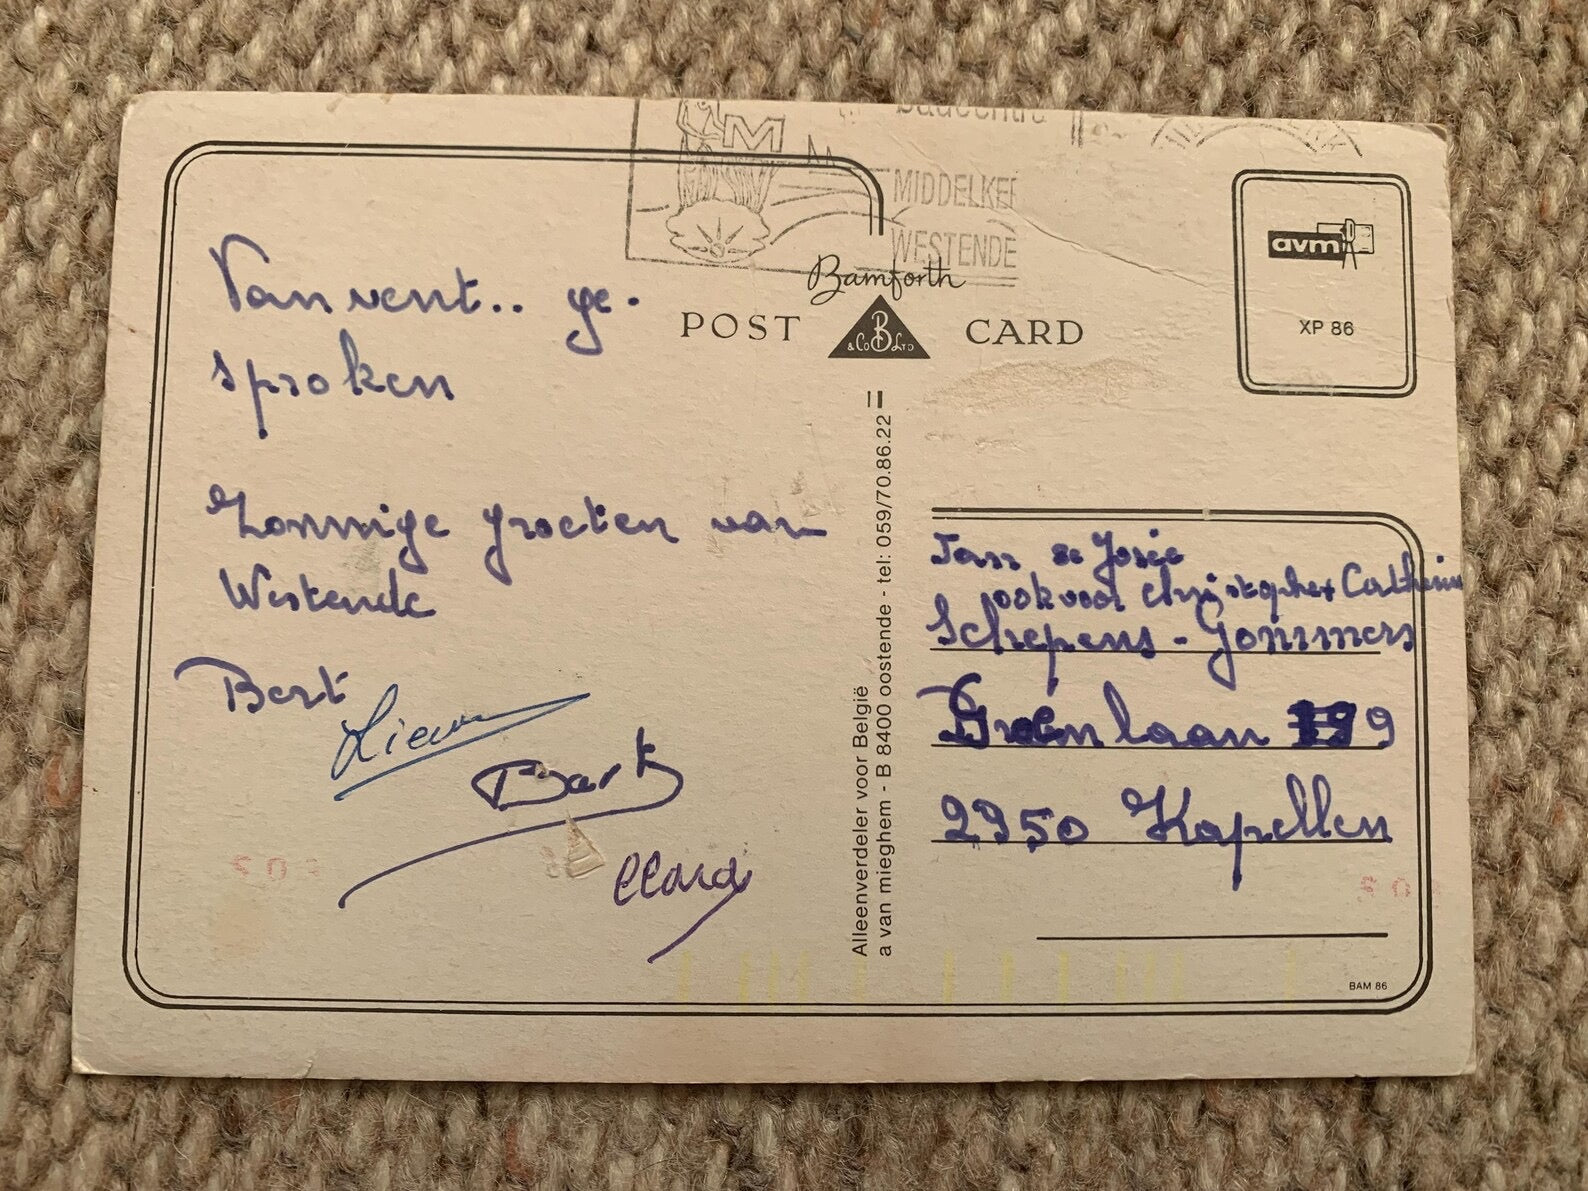 badcentra
M
MIDDELKE
WESTENDE
Bamforth
POST CARD
&Co B Ltd
avm
XP 86
Van vent.. ge-
sproken
Zonnige groeten van
Westende
Bert
Lieve
Bart
Clara
Alleenverdeler voor België
a van mieghem - B 8400 oostende - tel: 059/70.86.22
Jan & Josée
ook voor Christophe+
Schepens - Gommers
Groenlaan 9
2950 Kapellen
BAM 86